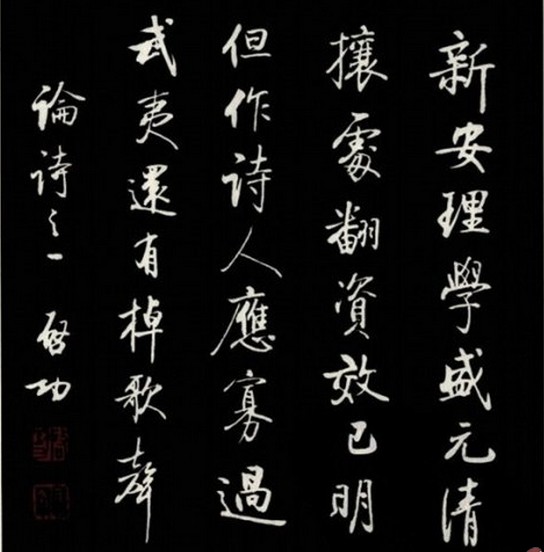 新安理學盛元清
攘處翻資效已明
但作詩人應寡過
武夷還有棹歌聲
論詩之一 啓功